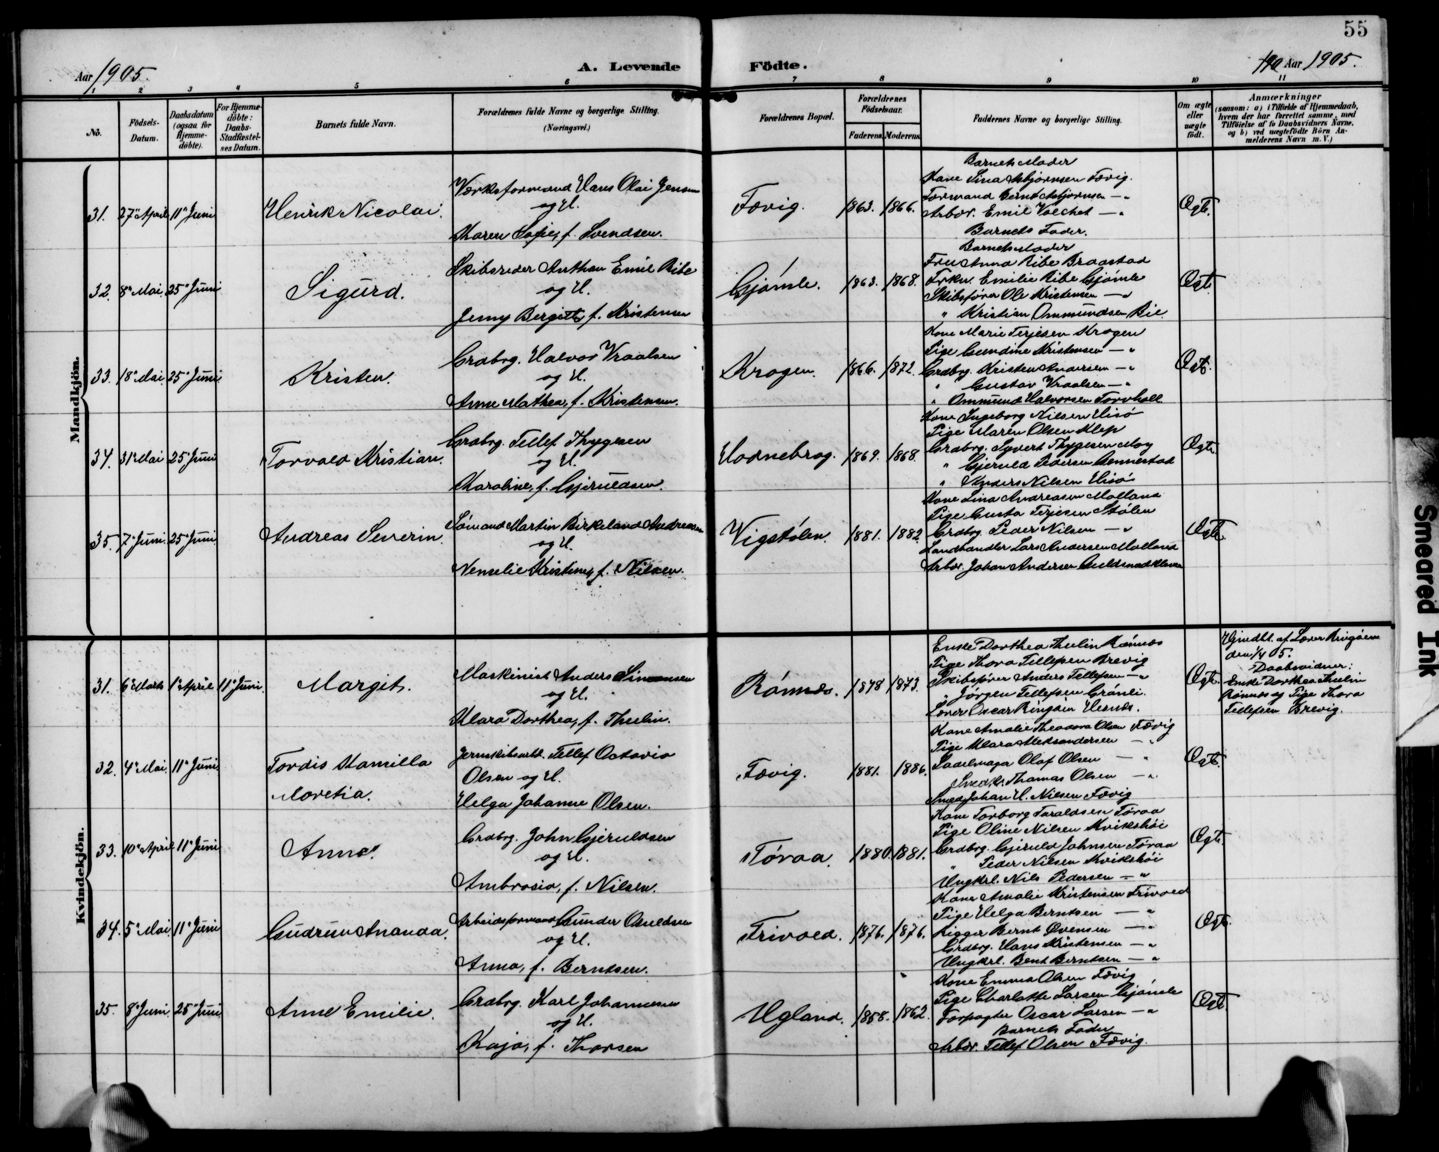 55
Aar 1905.
A. Levende
Födte.
Aar 1905.
1
2
3
4
5
6
7
8
9
10
11
No.
Födsels-
Datum.
Daabsdatum
(ogsaa for
Hjemme-
döbte).
For Hjemme-
döbte:
Daabs-
Stadfæstel-
ses Datum.
Barnets fulde Navn.
Forældrenes fulde Navne og borgerlige Stilling.
(Næringsvei.)
Forældrenes Bopæl.
Forældrenes
Födselsaar.
Faderens.
Moderens.
Faddernes Navne og borgerlige Stilling.
Om ægte
eller
uægte
födt.
Anmærkninger
(saasom: a) i Tilfælde af Hjemmedaab,
hvem der har forrettet samme, med
Tilföielse af to Daabsvidners Navne,
og b) ved uægtefödte Börn An-
melderens Navn m. V.)
Mandkjön.
31. 27de April 11te Juni
Henrik Nicolai.
Værksformand Hans Olai Jensen
og H.
Maren Sofie, f. Svendsen.
Fævig. 1863. 1866.
Barnets Moder
Kone Lina Asbjørnsen Fævig.
Formand Bernt Asbjørnsen — "
Arbdr. Emil — "
Barnets Fader.
Ægte.
32. 8de Mai 25de Juni
Sigurd.
Skibsreder Anthon Emil Ribe
og H.
Jenny Bergitte, f. Kristensen
Gjømle. 1863. 1868.
Barnets Moder
Fru Anna Ribe Braastad
Frkn. Emilie Ribe Gjømle
Skibsfører Ole Kristensen — "
" Kristian Ommundsen Bie.
Ægte
33. 18de Mai 25de Juni
Kristen.
Grdbrg. Halvor Vraalsen
og H.
Anne Mathea, f. Kristensen.
Krogen. 1866. 1872.
Kone Marie Terjesen Krogen
Pige Gundine Kristensen — "
Grdbrg. Kristen Andersen — "
" Gustav Vraalsen — "
" Ommund Halvorsen Torvholl
Ægte.
34. 31te Mai 25de Juni
Torvald Kristian.
Grdbrg. Tellef Thygesen
og H.
Karoline, f. Gjeruldsen.
Hodnebrog. 1869. 1868.
Kone Ingeborg Nilsen Hisö
Pige Maren Olsen Klep
Grdbrg. Syvert Thygesen Moy
" Gjeruld Pedersen Gennestad
" Anders Nilsen Hisö
Ægte
35. 7de Juni. 25de Juni
Andreas Severin.
Sømand Martin Birkeland Andreasen
og H.
Nemelie Kristine, f. Nilsen.
Vigstølen. 1881. 1882.
Kone Lina Andreasen Molland
Pige Gusta Terjesen Stølen
Grdbrg. Peder Nilsen — "
Landhandler Lars Andersen Molland
Arbdr. Johan Andersen
Ægte
Kvindekjön.
31. 6te Marts 1ste April 11te Juni
Margit.
Maskinist Anders Simonsen
og H.
Klara Dorthea, f. Thelin.
Rønnes. 1878 1873.
Enke Dorthea Thelin Rønnes
Pige Thora Tellefsen Brevig
Skibsfører Anders Tellefsen — "
" Jørgen Tellefsen Grønli.
Lærer Oscar Ringøen Hesnes.
Ægte.
Hjmdbt. af Lærer Ringøen
den 1/4 05.
Daabsvidner:
Enke Dorthea Thelin
Rønnes og Pige Thora
Tellefsen Brevig.
32. 4de Mai 11te Juni
Tordis Kamilla
Moretia.
Jernskibsarb. Tellef Octavio
Olsen og H.
Helga Johanne Olsen.
Fævig. 1881. 1886.
Kone Amalie Theodora Olsen Fævig
Pige Klara Aleksandersen — "
Sadelmager Olaf Olsen — "
Smedk. Thomas Olsen — "
Smed Johan H. Nilsen Fævig
Ægte
33. 10de April 11te Juni
Anne.
Grdbrg. John Gjeruldsen
og H.
Ambrosia, f. Nilsen.
Tøraa. 1880. 1881.
Kone Torborg Taraldsen Tøraa
Pige Oline Nilsen Kvikshöi
Grdbrg. Gjeruld Johnsen Tøraa
" Peder Nilsen Kvikshöi
Ungkrl. Nils Pedersen — "
Ægte
34. 5te Mai 11te Juni
Gudrun Ananda.
Arbeidsformand Gunder Osuldsen
og H.
Anna, f. Berntsen.
Frivold. 1876. 1876.
Kone Amalie Kristensen Frivold
Pige Helga Berntsen — "
Rigger Bernt Evensen — "
Grdbrg. Hans Kristensen — "
Ungkrl. Bent Berntsen — "
Ægte
35. 8de Juni 25de Juni
Anne Emilie.
Grdbrg. Karl Johannesen
og H.
Kaja, f. Thorsen
Ugland. 1858. 1862.
Kone Emma Olsen Fævig
Pige Charlotte Larsen Gjømle
Forpagter Oscar Larsen — "
Barnets Fader
Arbdr. Tellef Olsen Fævig.
Ægte
Smeared Ink